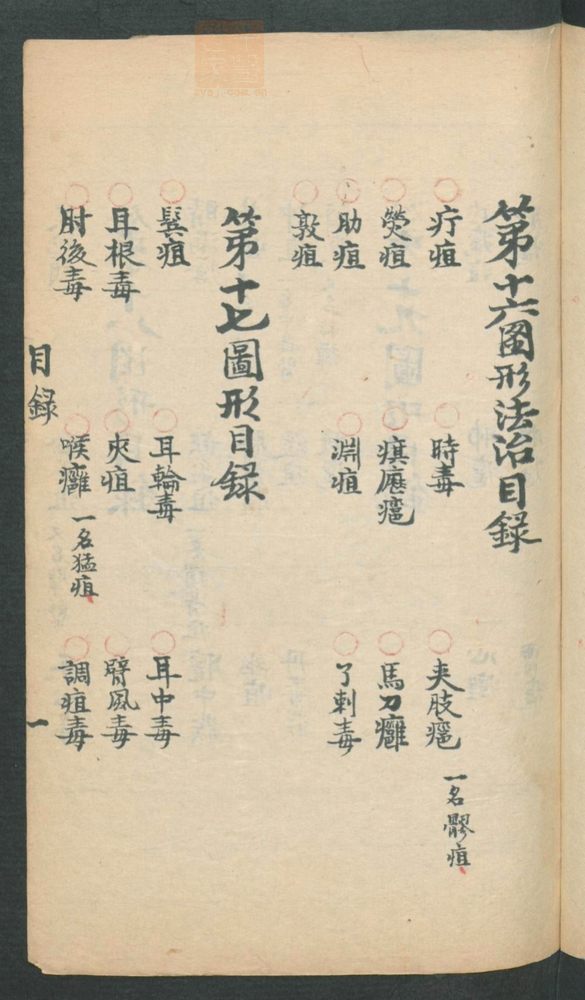 第十六圖形法治目錄
疔疽 時毒 夾肢癰 一名髎疽
熒疽 馬刀癰
肋疽 淵疽 了刺毒
敦疽
第十七圖形目錄
鬓疽 耳輪毒 耳中毒
耳根毒 夾疽 臂風毒
肘後毒 喉癰 一名猛疽 調疽毒
目錄 一